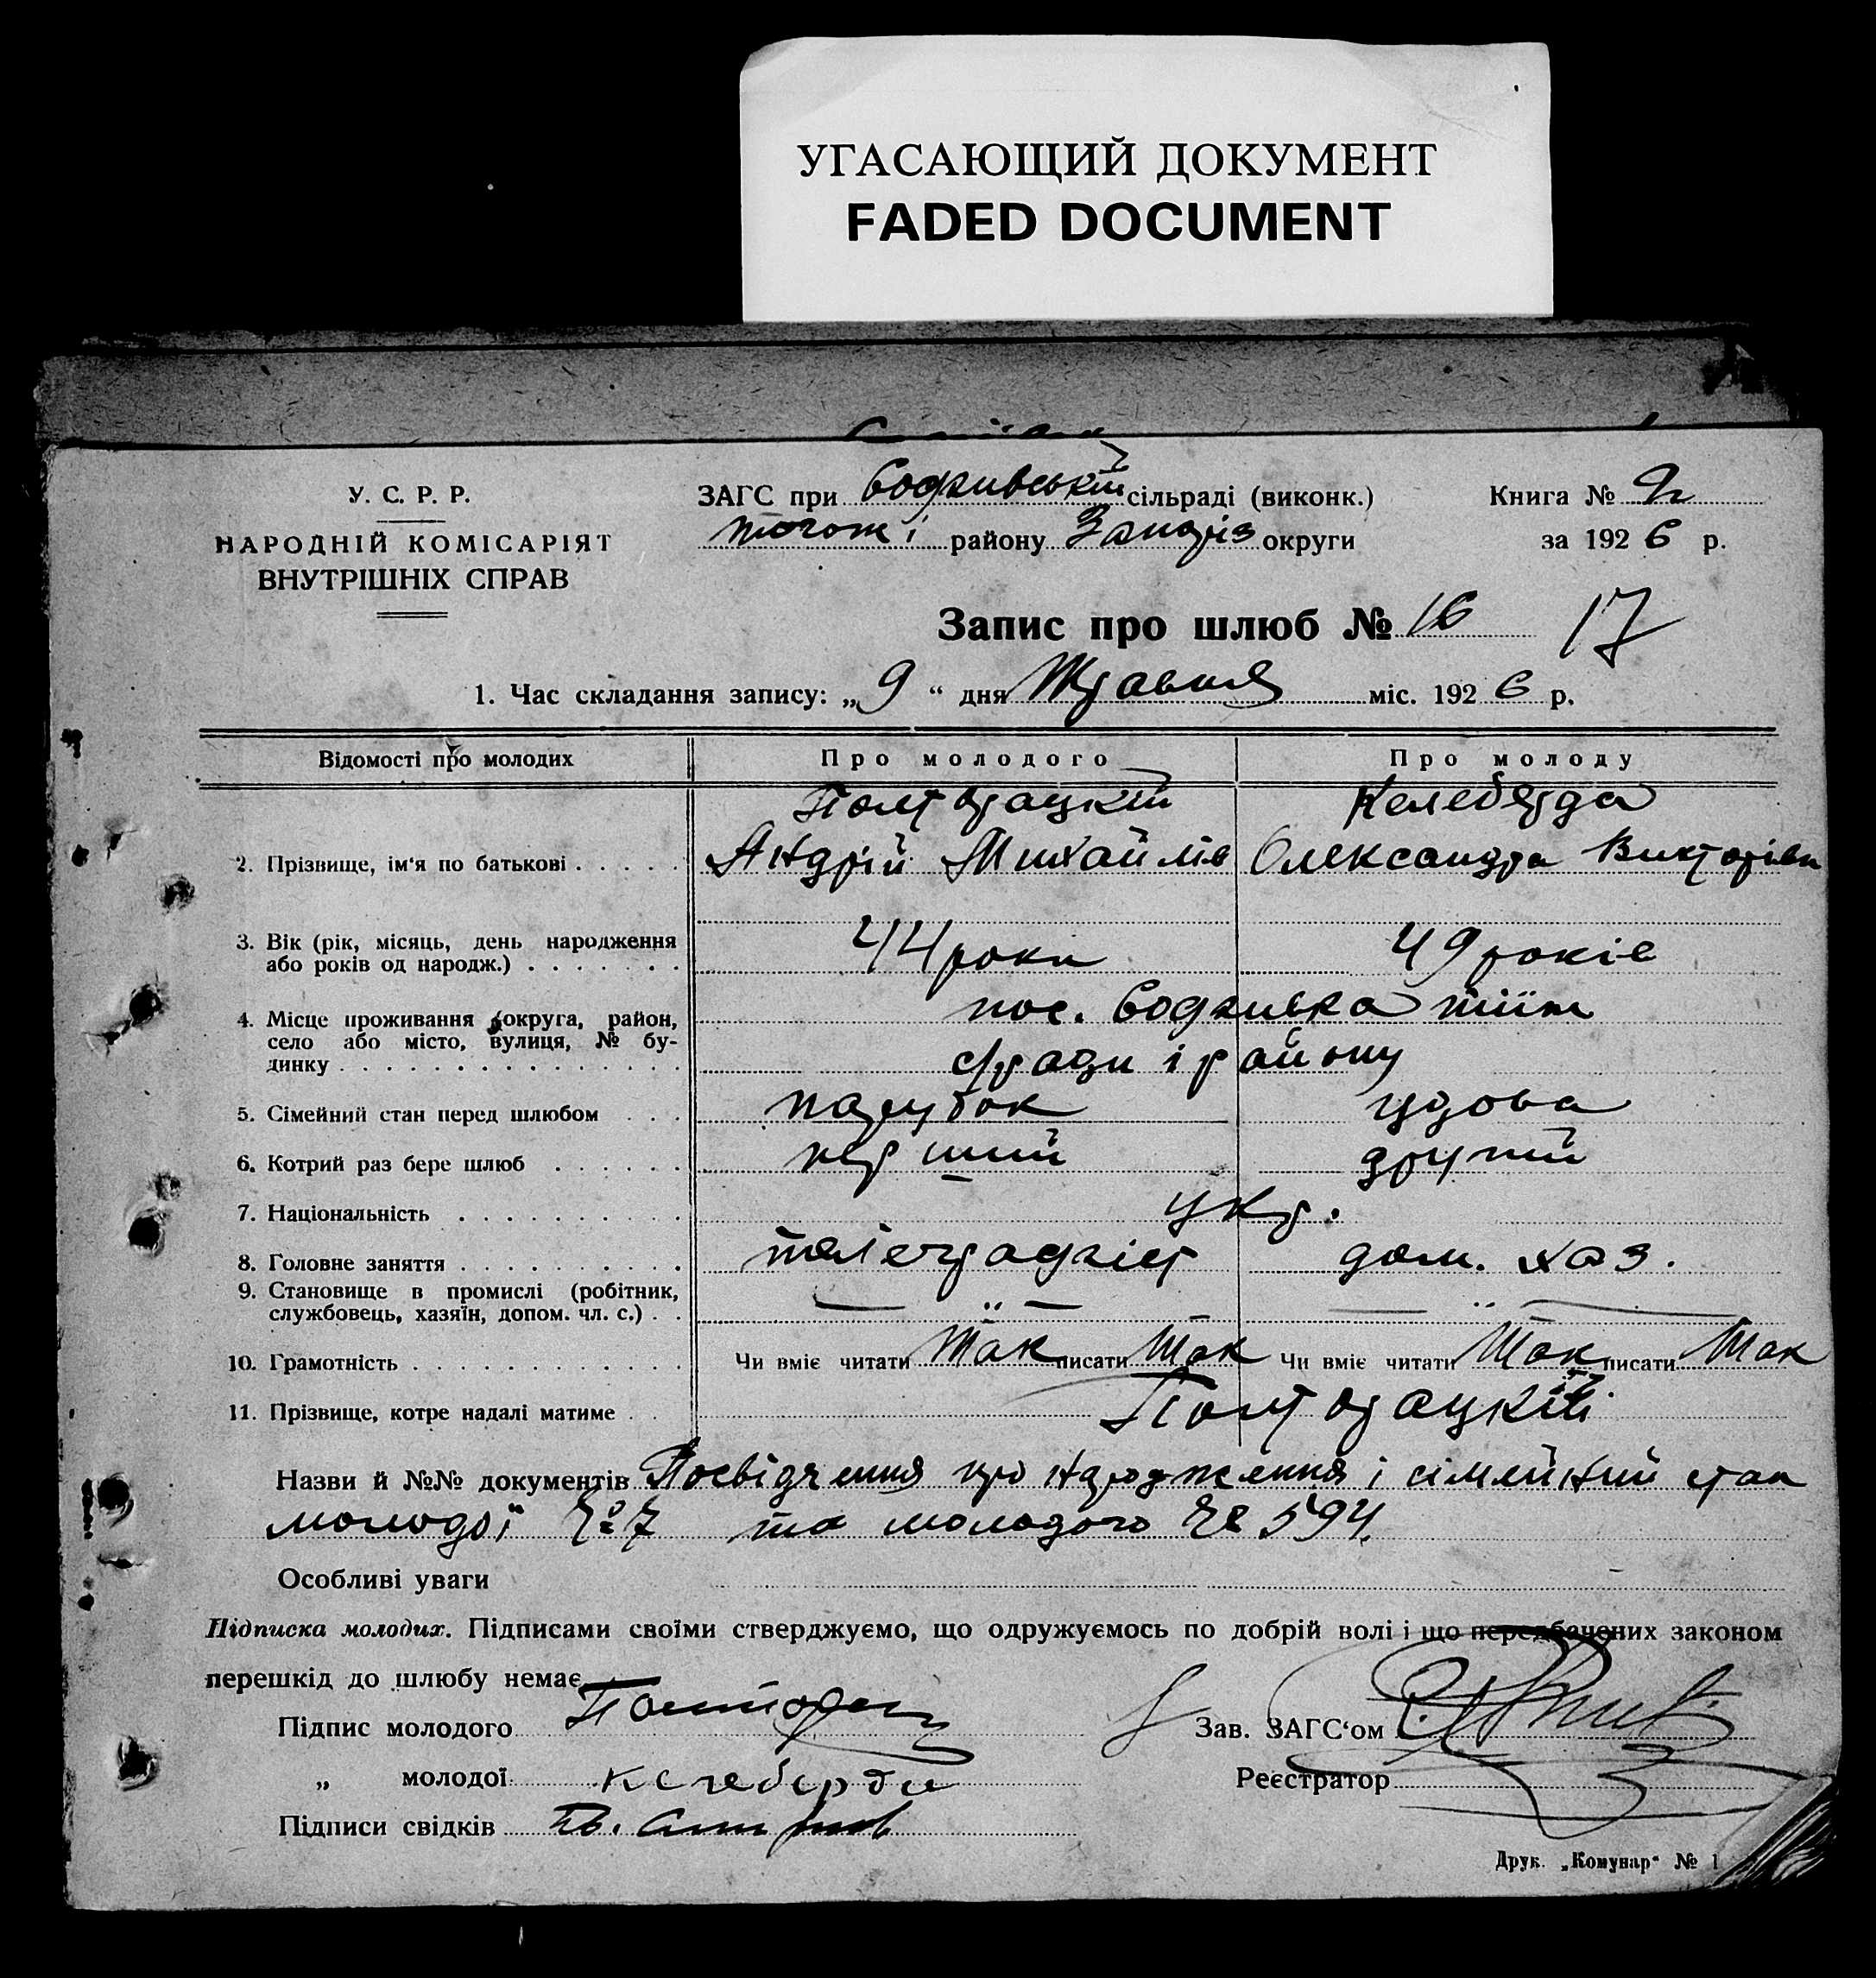 УГАСАЮЩИЙ ДОКУМЕНТ
FADED DOCUMENT
У. С. Р. Р.
НАРОДНІЙ КОМІСАРІЯТ
ВНУТРІШНІХ СПРАВ
ЗАГС при сільраді (виконк.)
району округи
Книга № 2
за 1926 р.
Запис про шлюб № 16 17
1. Час складання запису: „9“ дня Травня міс. 1926 р.
Відомості про молодих Про молодого Про молоду
Полторацкій Келеберда
2. Прізвище, ім'я по батькові Андрій Михайлів Олександра Вікторівн
3. Вік (рік, місяць, день народження
або років од народж.) 44 роки 49 років
4. Місце проживання (округа, район,
село або місто, вулиця, № бу-
динку пос. тіїж
с/ради і району
5. Сімейний стан перед шлюбом парубок удова
6. Котрий раз бере шлюб перший другий
7. Національність укр.
8. Головне заняття дом. хаз.
9. Становище в промислі (робітник,
службовець, хазяїн, допом. чл. с.) — „ — — „ —
10. Грамотність Чи вміє читати Так писати Так Чи вміє читати Так писати Так
11. Прізвище, котре надалі матиме Полторацкій
Назви й №№ документів Посвідчення про народження і сімейний стан
молодої № 7 та молодого № 594.
Особливі уваги
Підписка молодих. Підписами своїми стверджуємо, що одружуємось по добрій волі і що передбачених законом
перешкід до шлюбу немає
Підпис молодого
Зав. ЗАГС'ом
„ молодої келеберда
Реєстратор
Підписи свідків
Друк. „Комунар“ № 1